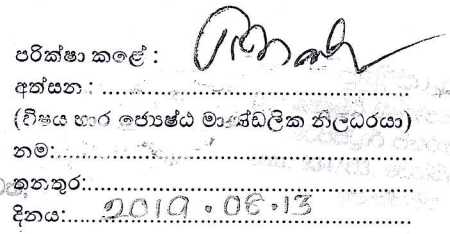 පරික්ෂා කළේ :
අත්සන : ........................................
(විෂය භාර ජ්‍යෙෂ්ඨ මාණ්ඩලික නිලධරයා)
නම:........................................
තනතුර:........................................
දිනය:.....2019.08.13